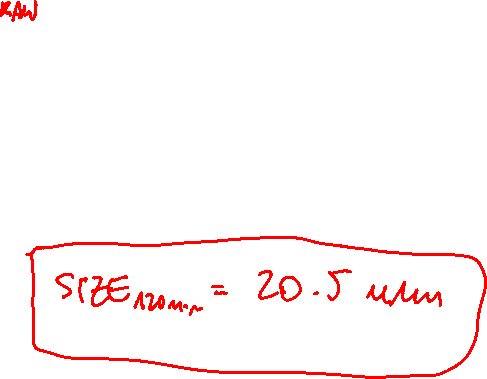 RAW
SIZE120min = 20.5 mm